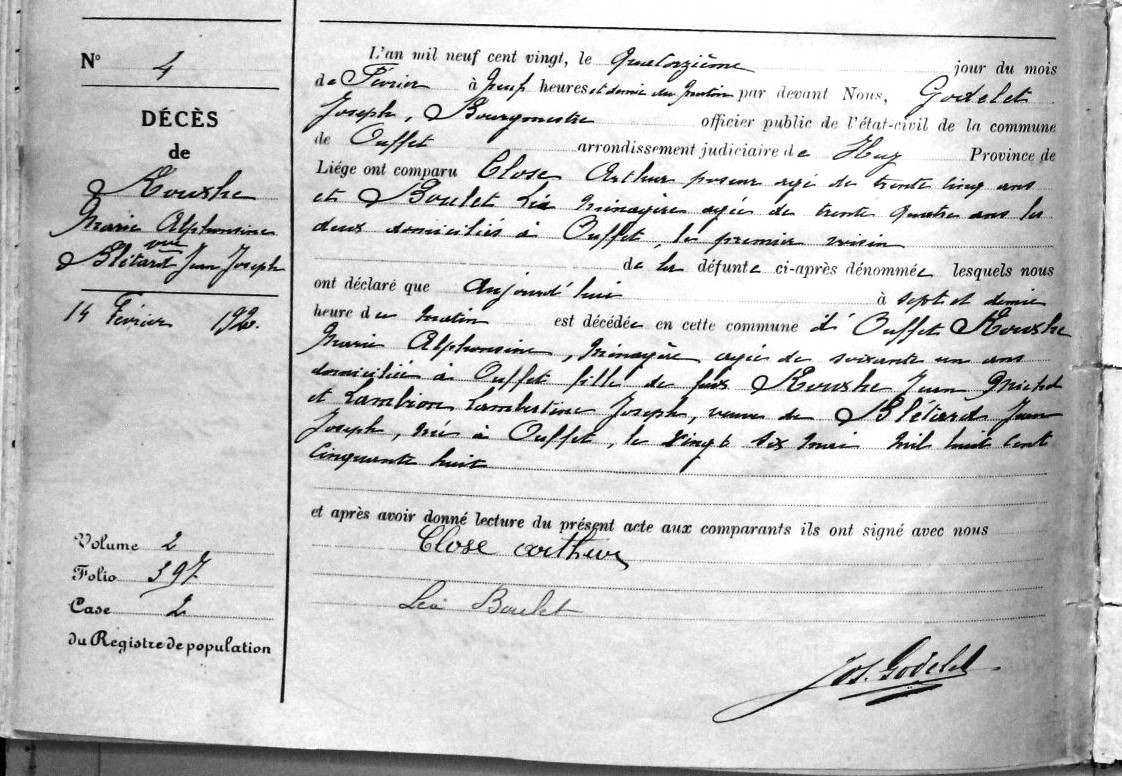 N° 4
DÉCÈS
de
Rouxhe
Marie Alphonsine
vve
Blétard Jean Joseph
14 Février 1920.
Volume 2
Folio 397
Case 2
du Registre de population
L'an mil neuf cent vingt, le Quatorzième jour du mois
de Février à Neuf heures et demie du matin par devant Nous, Godelet
Joseph, Bourgmestre officier public de l'état-civil de la commune
de Ouffet arrondissement judiciaire de Huy Province de
Liége ont comparu Close Arthur poseur agé de trente cinq ans
et Boulet Léa Ménagère agée de trente quatre ans les
deux domiciliés à Ouffet, le premier voisin
de la défunte ci-après dénommée lesquels nous
ont déclaré que Aujourd'hui à sept et demie
heure du matin est décédée en cette commune d'Ouffet Rouxhe
Marie Alphonsine, Ménagère agée de soixante un ans
domiciliée à Ouffet fille de feus Rouxhe Jean Michel
et Lambion Lambertine Joseph, veuve de Blétard Jean
Joseph, née à Ouffet, le Vingt six mai Mil huit cent
Cinquante huit
et après avoir donné lecture du présent acte aux comparants ils ont signé avec nous
Close arthur
Léa Boulet
Jos. Godelet